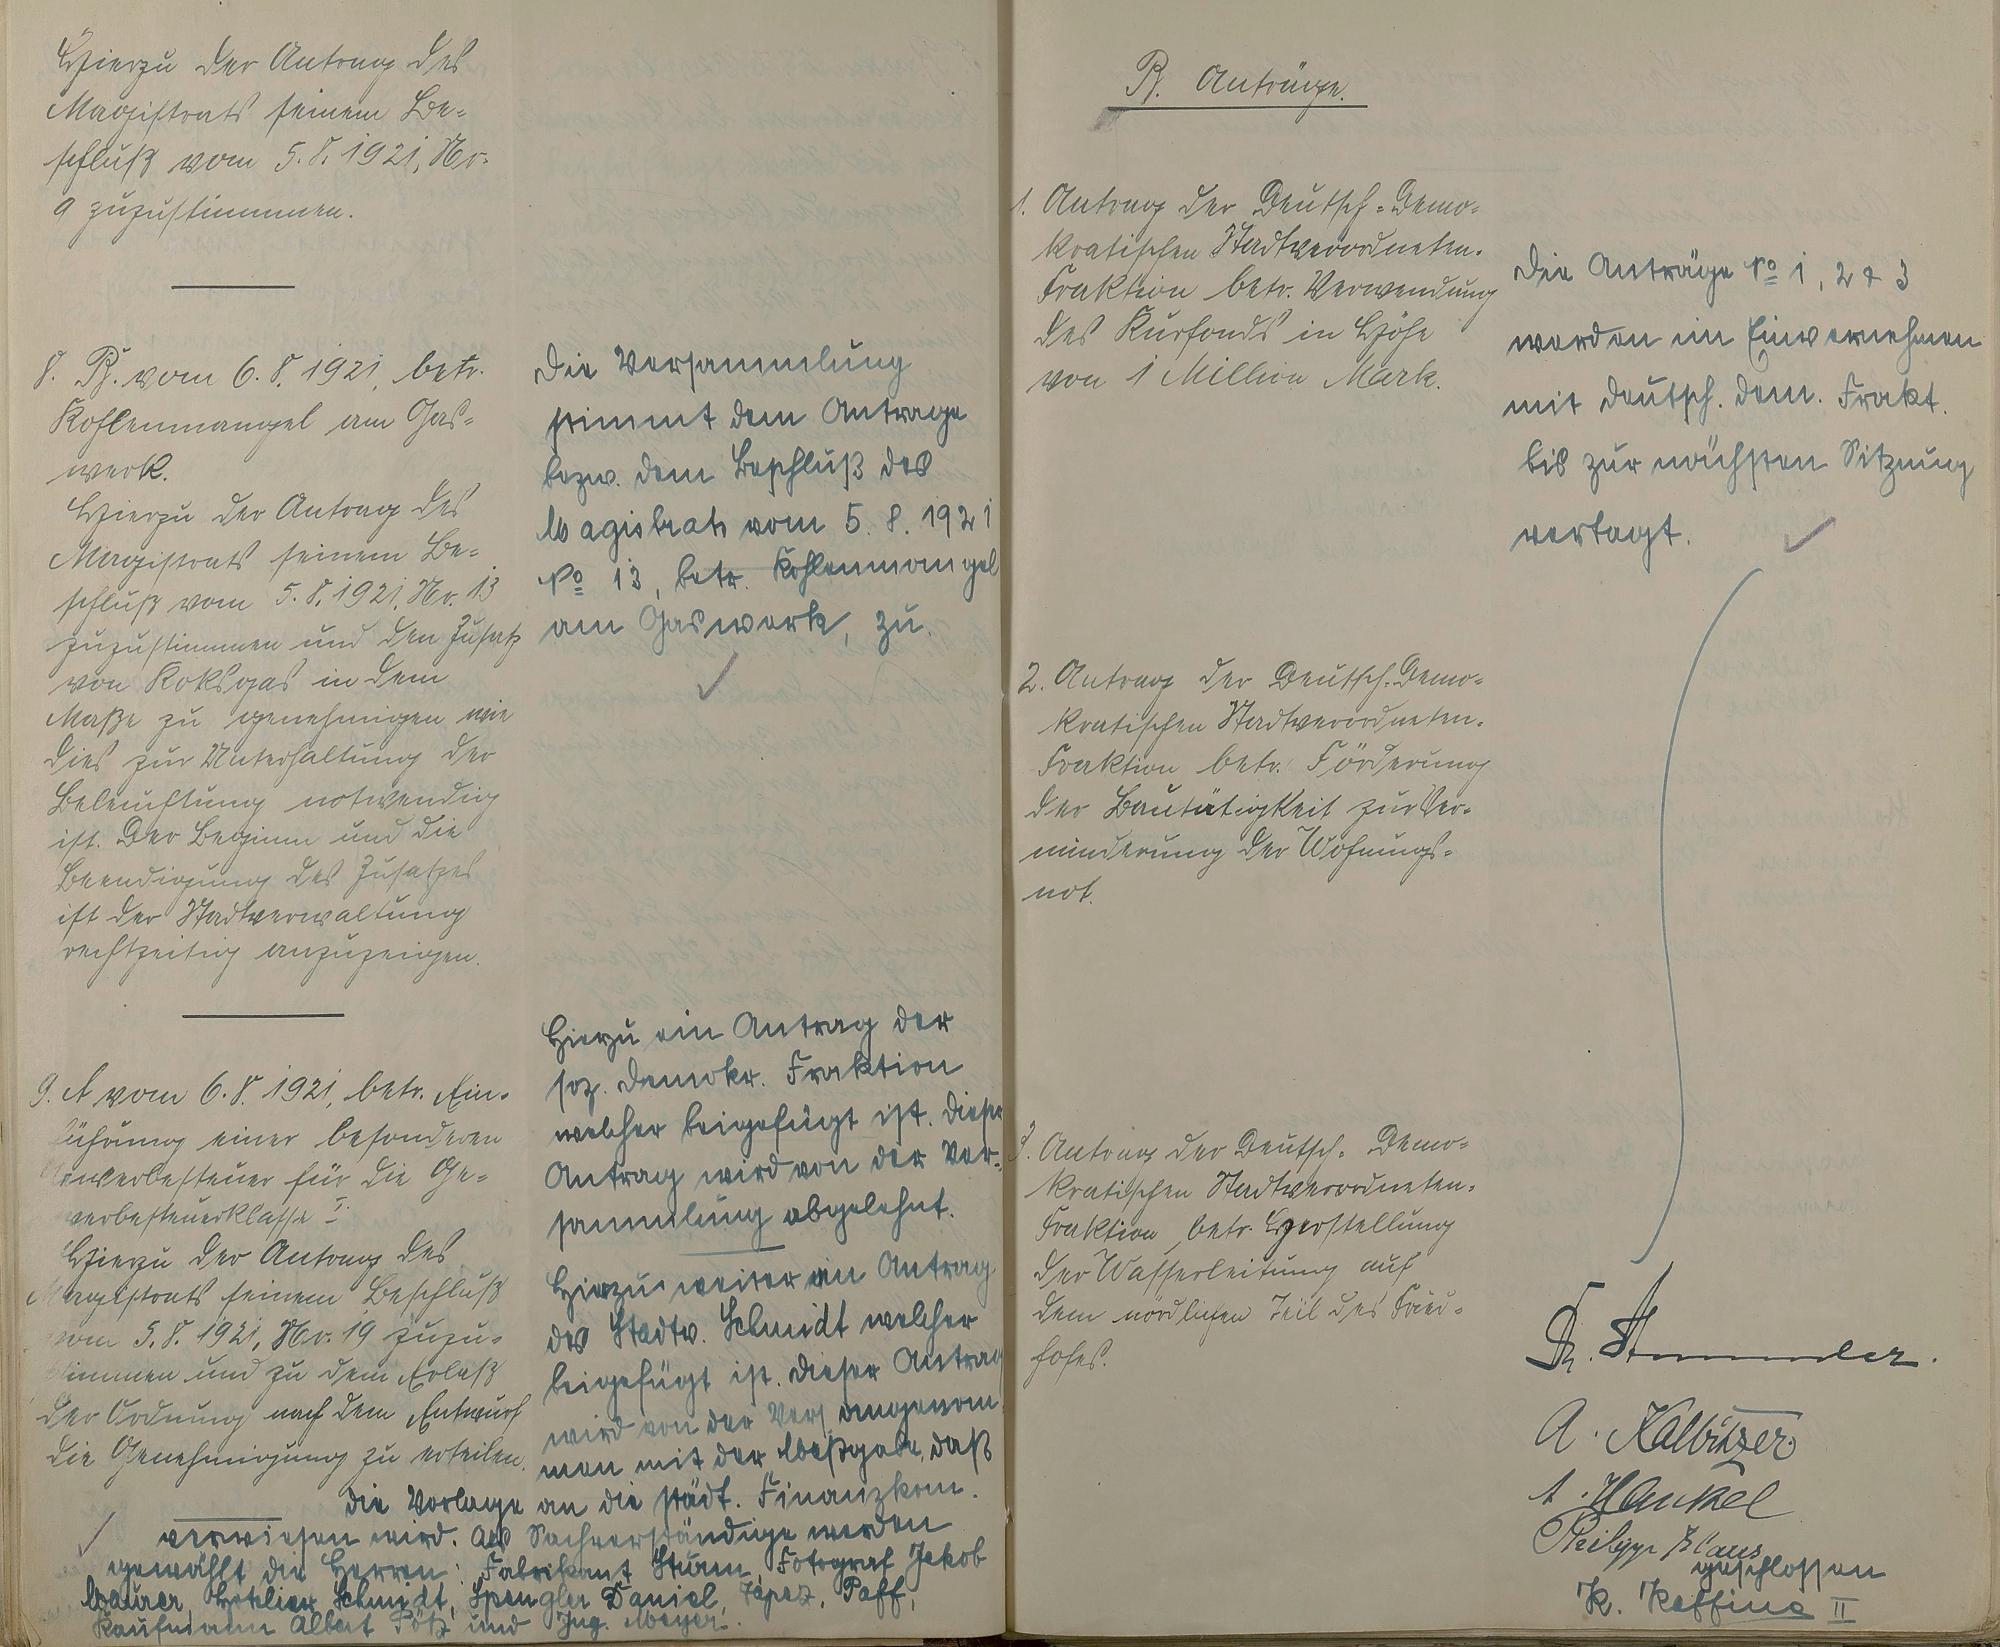 Hierzu der Antrag des
Magistrats seinem Be-
schluß vom 5.8.1921, Nr.
9 zuzustimmen.
8. B. vom 6.8.1921, betr.
Kohlenmangel am Gas-
werk.
Hierzu der Antrag des
Magistrats seinem Be-
schluß vom 5.8.1921, Nr. 13
zuzustimmen und den Zusatz
von Koksgas in dem
Maße zu genehmigen wie
dies zur Unterhaltung der
Beleuchtung notwendig
ist. Der Beginn und die
Beendigung des Zusatzes
ist der Stadtverwaltung
rechtzeitig anzuzeigen.
Die Versammlung
stimmt dem Antrage
bezw. dem Beschluß des
Magistrats vom 5.8.1921
No 13, betr. Kohlenmangel
am Gaswerk, zu.
9. A vom 6.8.1921, betr. Ein-
führung einer besonderen
Gewerbesteuer für die Ge-
werbesteuerklasse I.
Hierzu der Antrag des
Magistrats seinem Beschluß
vom 5.8.1921, Nr. 19 zuzu-
stimmen und zu dem Erlaß
der Ordnung nach dem Entwurf
die Genehmigung zu erteilen.
Hierzu ein Antrag der
soz. demokr. Fraktion
welcher beigefügt ist. Dieser
Antrag wird von der Ver-
sammlung abgelehnt.
Hierzu weiter ein Antrag
des Stadtv. Schmidt welcher
beigefügt ist. Dieser Antrag
wird von der Vers angenom
men mit der Maßgabe, daß
die Vorlage an die städt. Finanzkom.
verwiesen wird. Als Sachverständige werden
gewählt die Herren: Fabrikant Sturm, Fotograf Jakob
Maurer, Hotelier Schmidt, Spengler Daniel, Tapez. Paff,
Kaufmann Albert und Ing. Meyer.
B. Anträge.
1. Antrag der Deutsch-Demo-
kratischen Stadtverordneten-
Fraktion betr. Verwendung
des Kurfonds in Höhe
von 1 Million Mark.
Die Anträge No 1, 2 & 3
werden im Einvernehmen
mit deutsch. dem. Frakt.
bis zur nächsten Sitzung
vertagt.
2. Antrag der Deutsch-Demo-
kratischen Stadtverordneten-
Fraktion betr. Förderung
der Bautätigkeit zur Ver-
minderung der Wohnungs-
not.
3. Antrag der Deutsch-Demo-
kratischen Stadtverordneten-
Fraktion betr. Herstellung
der Wasserleitung auf
dem nördlichen Teil des Fried-
hofes.
Dr. Stemmler.
A. Kalbitzer
A. Henkel
Philipp Klaus
geschlossen
K. Keffine II